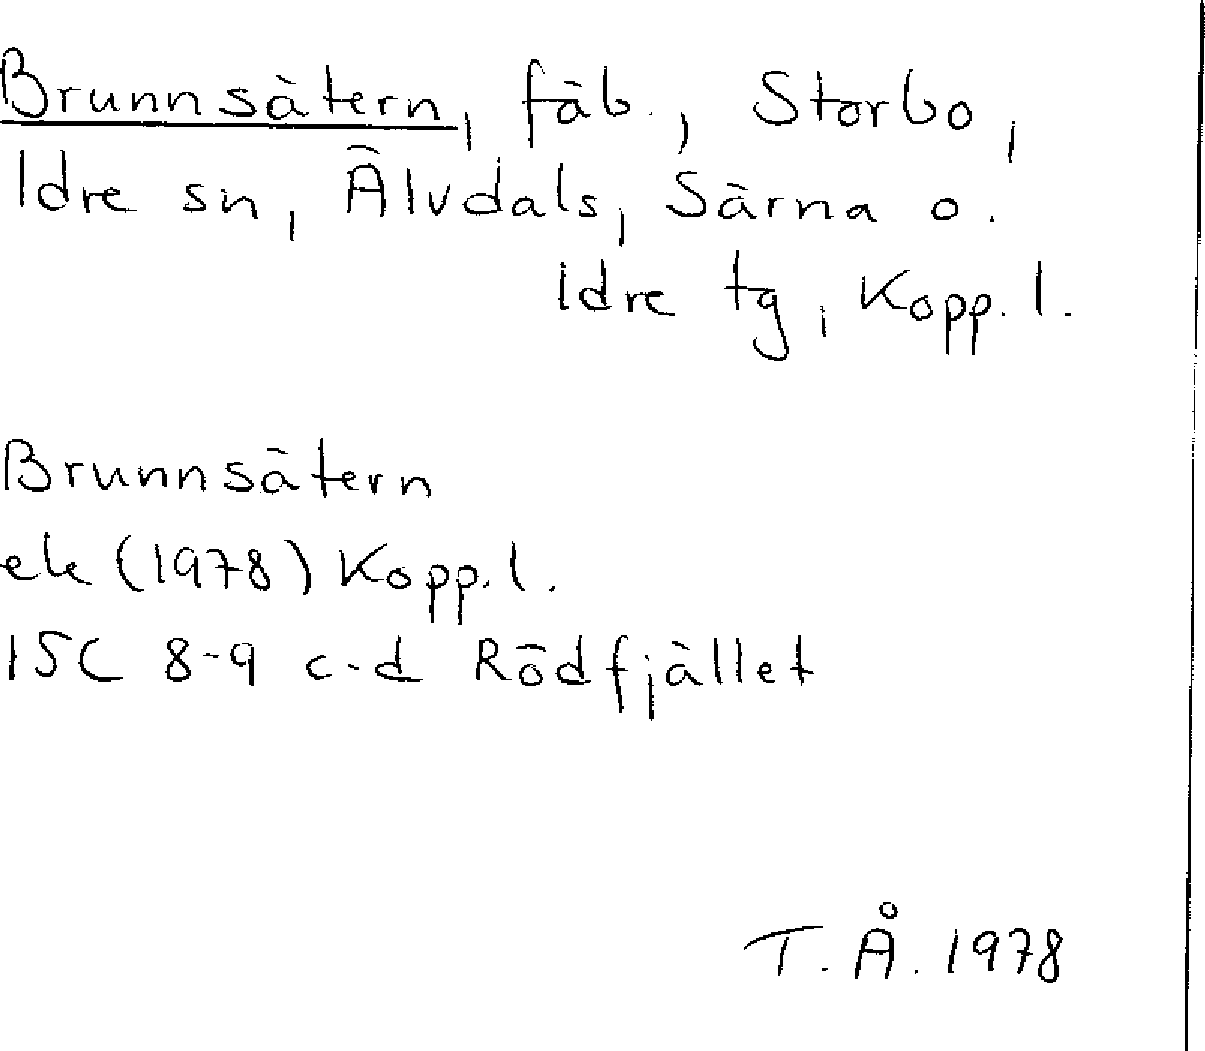 Brunnsätern, fäb., Storbo,
Idre sn, Älvdals, Särna o.
Idre tg, Kopp. l.
Brunnsätern
ek (1978) Kopp. l.
15C 8-9 c-d Rödfjället
T. Å. 1978